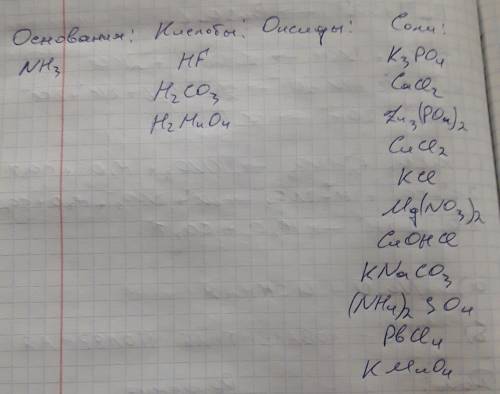 Основания: Кислоты: Оксиды: Соли:
NH3 HF K3PO4
H2CO3 CaCl2
H2MnO4 Zn3(PO4)2
CuCl2
KCl
Mg(NO3)2
CuOHCl
KNaCO3
(NH4)2SO4
PbCl4
KMnO4